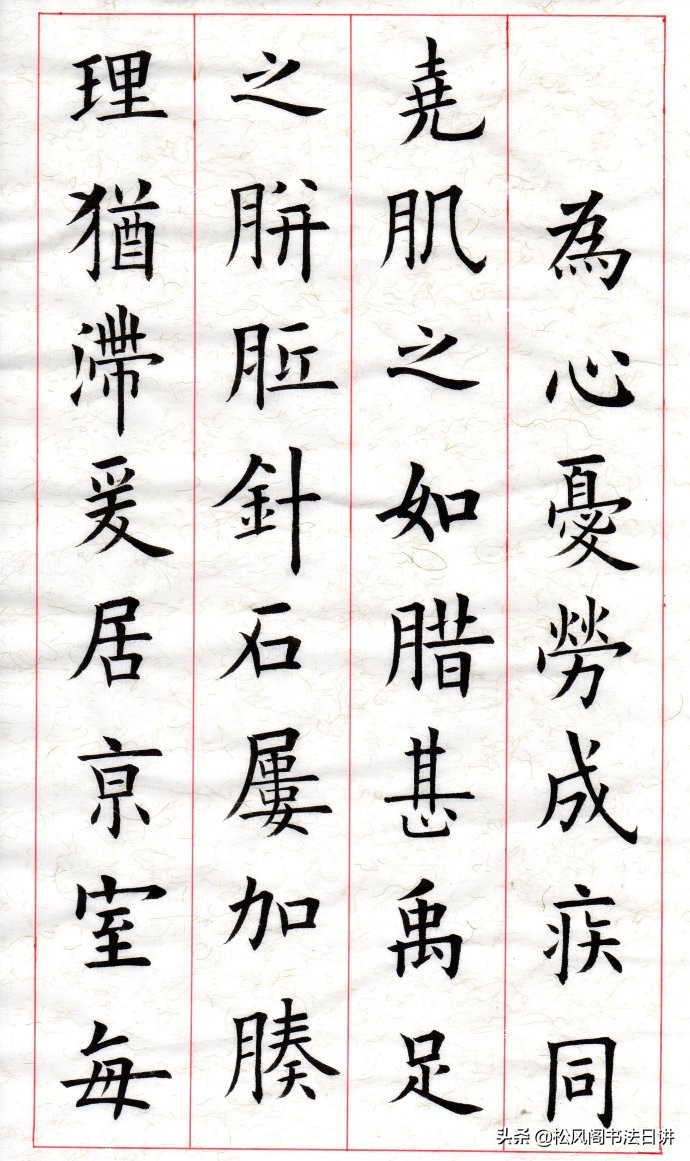 為心憂勞成疾同
堯肌之如腊甚禹足
之胼胝針石屢加腠
理猶滯爰居京室每
头条 @松风阁书法日讲